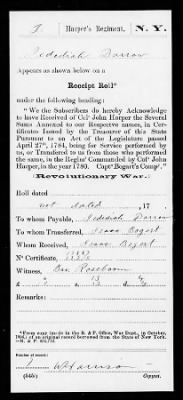 Harper's Regiment, N. Y.
Jedediah Darrow
Appears as shown below on a
Receipt Roll*
under the following heading:
"We the Subscribers do hereby Acknowledge
to have Received of Col° John Harper the Several
Sums Annexed to our Respective names, in
Certificates Issued by the Treasurer of this State
Pursuant to an Act of the Legislature passed
April 27th, 1784, being for Service performed by
us, or Transferred to us from those who performed
the same, in the Regim' Commanded by Col° John
Harper, in the year 1780. Capt° Bogart's Comp°."
Revolutionary War.
Roll dated
not dated, 17
To whom Payable, Jedediah Darrow
To whom Transferred, Isaac Bogert
Whom Received, Isaac Bogert
N° Certificate,
Witness, Roseboom
Remarks:
*From copy (made in the R. & P. Office, War Dept., in October,
of an original record borrowed from the State of New York.
—R. & P.
Number of record:
1 Harrison
Copyist.